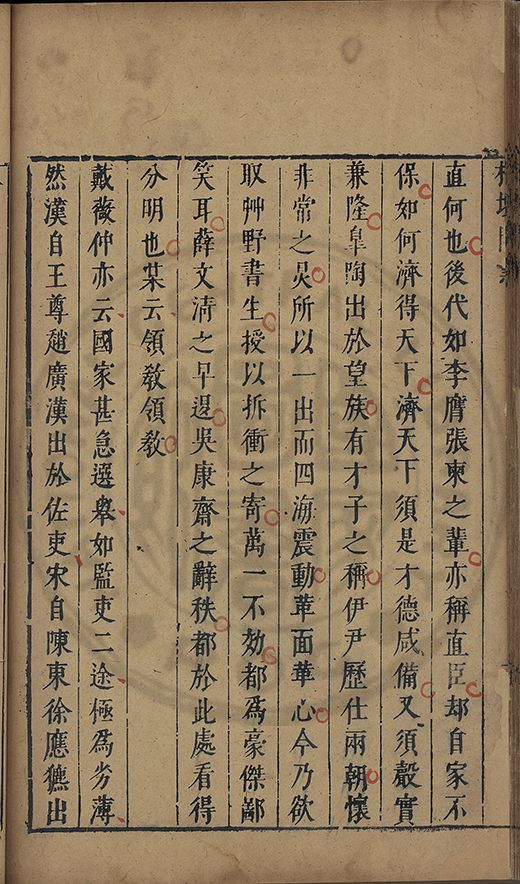 直何也後代如李膺張柬之輩亦稱直臣却自家不
保如何濟得天下濟天下須是才德咸備又須聲實
兼隆臯陶出於望族有才子之稱伊尹歷仕兩朝懷
非常之畧所以一出而四海震動革面革心今乃欲
取艸野書生授以折衝之寄萬一不効都為豪傑鄙
笑耳薛文清之早退吳康齋之辭秩都於此處看得
分明也某云領敎領敎
戴薇仲亦云國家甚急選舉如監吏二途極為劣薄
然漢自王尊趙廣漢出於佐吏宋自陳東徐應鑣出